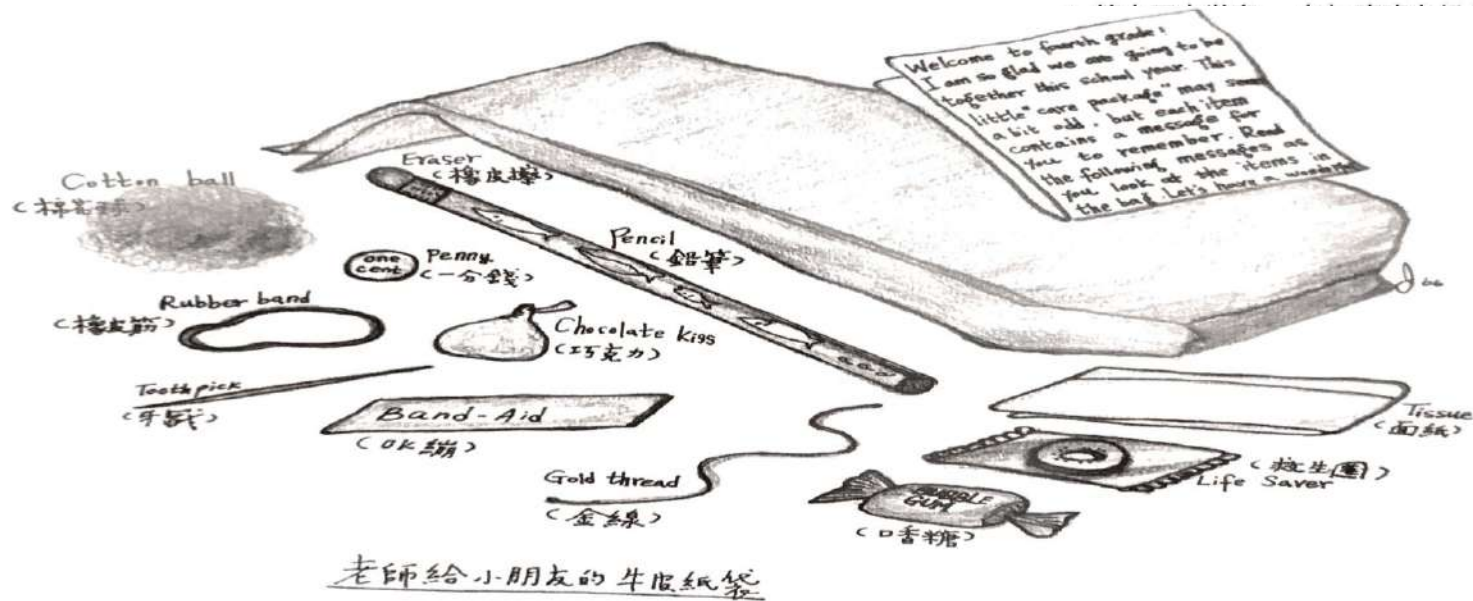 Welcome to fourth grade!
I am so glad we are going to be
together this school year. This
little "care package" may seem
a bit odd, but each item
contains a message for
you to remember. Read
the following messages as
you look at the items in
the bag. Let's have a
Eraser
(橡皮擦)
Cotton ball
(棉花球)
Pencil
(鉛筆)
one
cent
Penny
(一分錢)
Rubber band
(橡皮筋)
Chocolate kiss
(巧克力)
Toothpick
(牙籤)
Band-Aid
(OK繃)
Tissue
(面紙)
(救生圈)
Life Saver
Gold thread
(金線)
BUBBLE
GUM
(口香糖)
老師給小朋友的牛皮紙袋